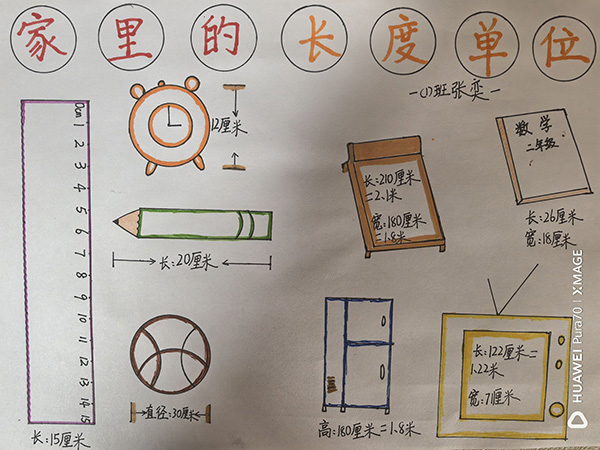 家里的长度单位
一(1)班张奕
0cm
1
2
3
4
5
6
7
8
9
10
11
12
13
14
15
长:15厘米
12厘米
长:20厘米
直径:30厘米
长:210厘米
=2.1米
宽:180厘米
=1.8米
数学
二年级
长:26厘米
宽:18厘米
高:180厘米=1.8米
长:122厘米=
1.22米
宽:71厘米
HUAWEI Pura70 | XMAGE